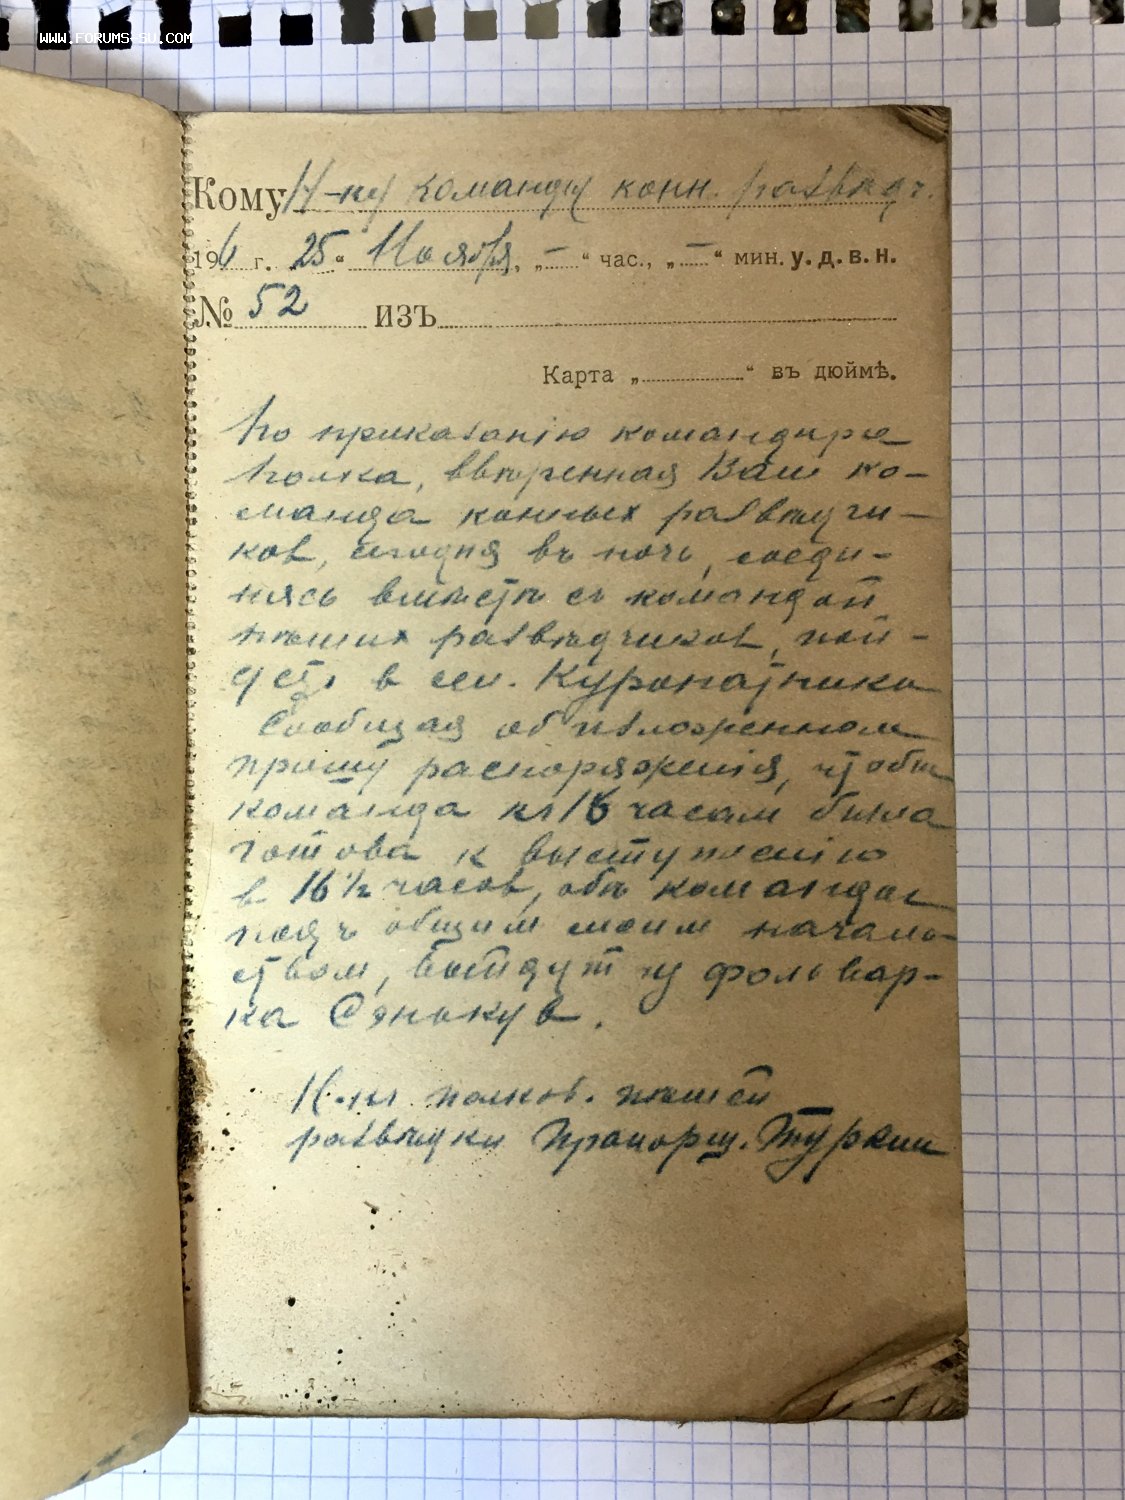 WWW.FORUMS-SU.COM
Кому Н-ку команды конн. развѣдч.
1916 г. 25 “ Ноября, „ — “ час., „ — “ мин. у. д. в. н.
№ 52 изъ
Карта „ “ въ дюймѣ.
По приказанію командира
полка, ввѣренная Вам ко-
манда конных развѣдчи-
ков, сегодня въ ночь, соеди-
нясь вмѣстѣ съ командой
пѣших развѣдчиков, пой-
детъ в сел. Куропатника
Сообщая об изложенном
прошу распоряженія, чтобы
команда къ 16 часам была
готова к выступленію
в 16 ½ часов, обѣ команды
подъ общим моим началь-
ством, выйдут у фольвар-
ка
Н-къ полков. пѣшей
развѣдки Прапорщ. Туркин